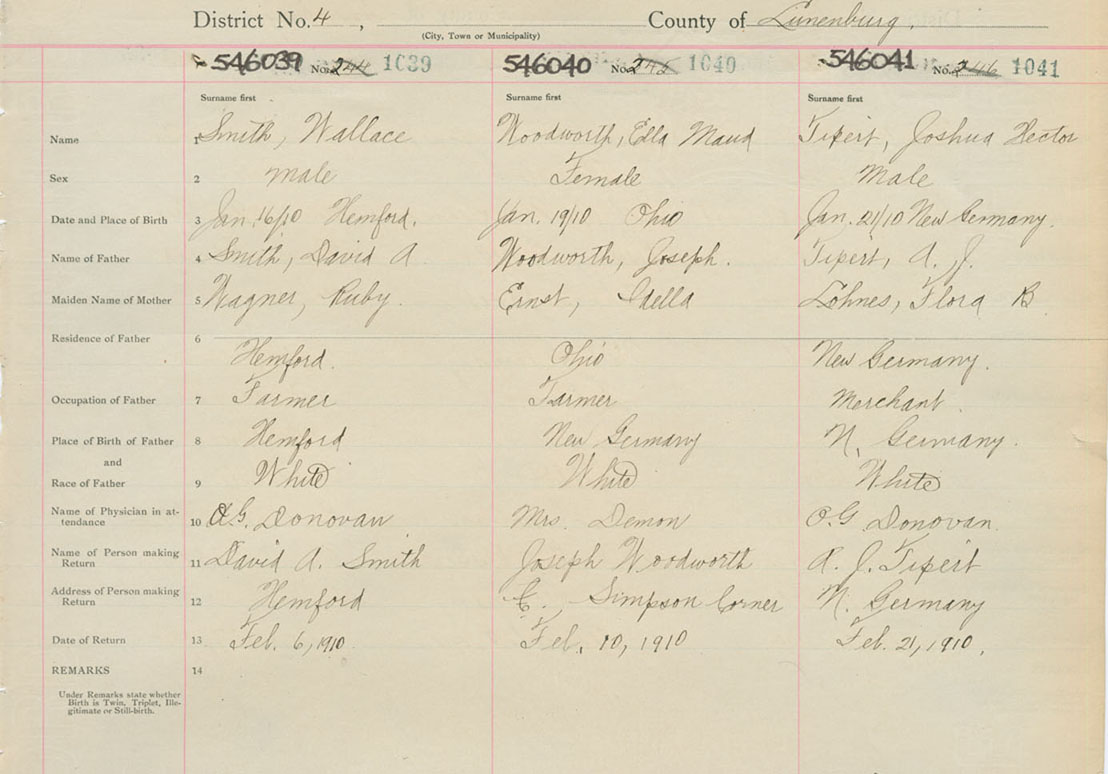 District No. 4 , County of Lunenburg.
(City, Town or Municipality)
546039 No. 244 1039 546040 No. 245 1040 546041 No. 246 1041
Surname first Surname first Surname first
Name 1 Smith, Wallace Woodworth, Ella Maud Tipert, Joshua Hector
Sex 2 Male Female Male
Date and Place of Birth 3 Jan. 16/10 Hemford. Jan. 19/10 Ohio Jan. 21/10 New Germany.
Name of Father 4 Smith, David A Woodworth, Joseph. Tipert, A. J.
Maiden Name of Mother 5 Wagner, Ruby. Ernst, Idella Lohnes, Flora B
Residence of Father 6
Hemford. Ohio New Germany.
Occupation of Father 7 Farmer Farmer Merchant.
Place of Birth of Father 8 Hemford New Germany N. Germany.
and
Race of Father 9 White White White
Name of Physician in at-
tendance 10 O.G. Donovan Mrs. Demon O.G Donovan.
Name of Person making
Return 11 David A. Smith Joseph Woodworth A. J. Tipert
Address of Person making
Return 12 Hemford Simpson Corner N. Germany
Date of Return 13 Feb. 6, 1910. Feb. 10, 1910 Feb. 21, 1910.
REMARKS 14
Under Remarks state whether
Birth is Twin, Triplet, Ille-
gitimate or Still-birth.